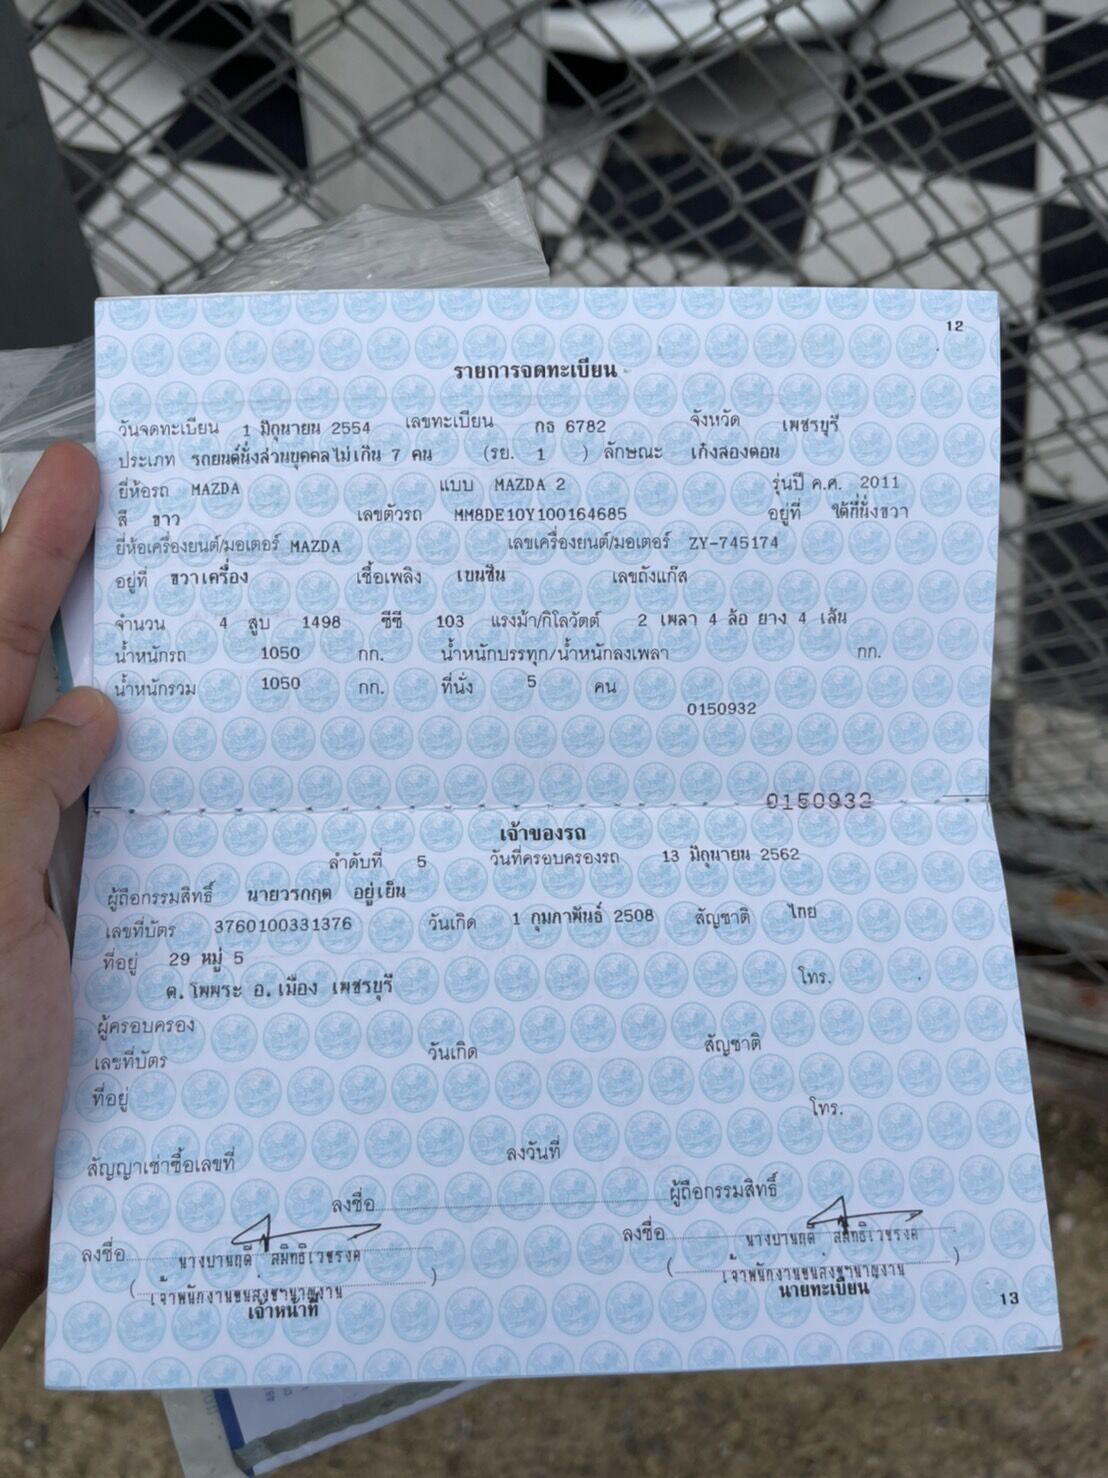 12
รายการจดทะเบียน
วันจดทะเบียน 1 มิถุนายน 2554 เลขทะเบียน กธ 6782 จังหวัด เพชรบุรี
ประเภท รถยนต์นั่งส่วนบุคคลไม่เกิน 7 คน (รย. 1 ) ลักษณะ เก๋งสองตอน
ยี่ห้อรถ MAZDA แบบ MAZDA 2 รุ่นปี ค.ศ. 2011
สี ขาว เลขตัวรถ MM8DE10Y100164685 อยู่ที่ ใต้ที่นั่งขวา
ยี่ห้อเครื่องยนต์/มอเตอร์ MAZDA เลขเครื่องยนต์/มอเตอร์ ZY-745174
อยู่ที่ ขวาเครื่อง เชื้อเพลิง เบนซิน เลขถังแก๊ส
จำนวน 4 สูบ 1498 ซีซี 103 แรงม้า/กิโลวัตต์ 2 เพลา 4 ล้อ ยาง 4 เส้น
น้ำหนักรถ 1050 กก. น้ำหนักบรรทุก/น้ำหนักลงเพลา กก.
น้ำหนักรวม 1050 กก. ที่นั่ง 5 คน
0150932
0150932
เจ้าของรถ
ลำดับที่ 5 วันที่ครอบครองรถ 13 มิถุนายน 2562
ผู้ถือกรรมสิทธิ์ นายวรกฤต อยู่เย็น
เลขที่บัตร 3760100331376 วันเกิด 1 กุมภาพันธ์ 2508 สัญชาติ ไทย
ที่อยู่ 29 หมู่ 5
ต.โพพระ อ.เมือง เพชรบุรี โทร.
ผู้ครอบครอง
เลขที่บัตร วันเกิด สัญชาติ
ที่อยู่
โทร.
สัญญาเช่าซื้อเลขที่ ลงวันที่
ลงชื่อ ผู้ถือกรรมสิทธิ์
ลงชื่อ นางปานฤดี สมิทธิเวชรงค์ ลงชื่อ นางปานฤดี สมิทธิเวชรงค์
(เจ้าพนักงานขนส่งชำนาญงาน) (เจ้าพนักงานขนส่งชำนาญงาน)
เจ้าหน้าที่ นายทะเบียน
13